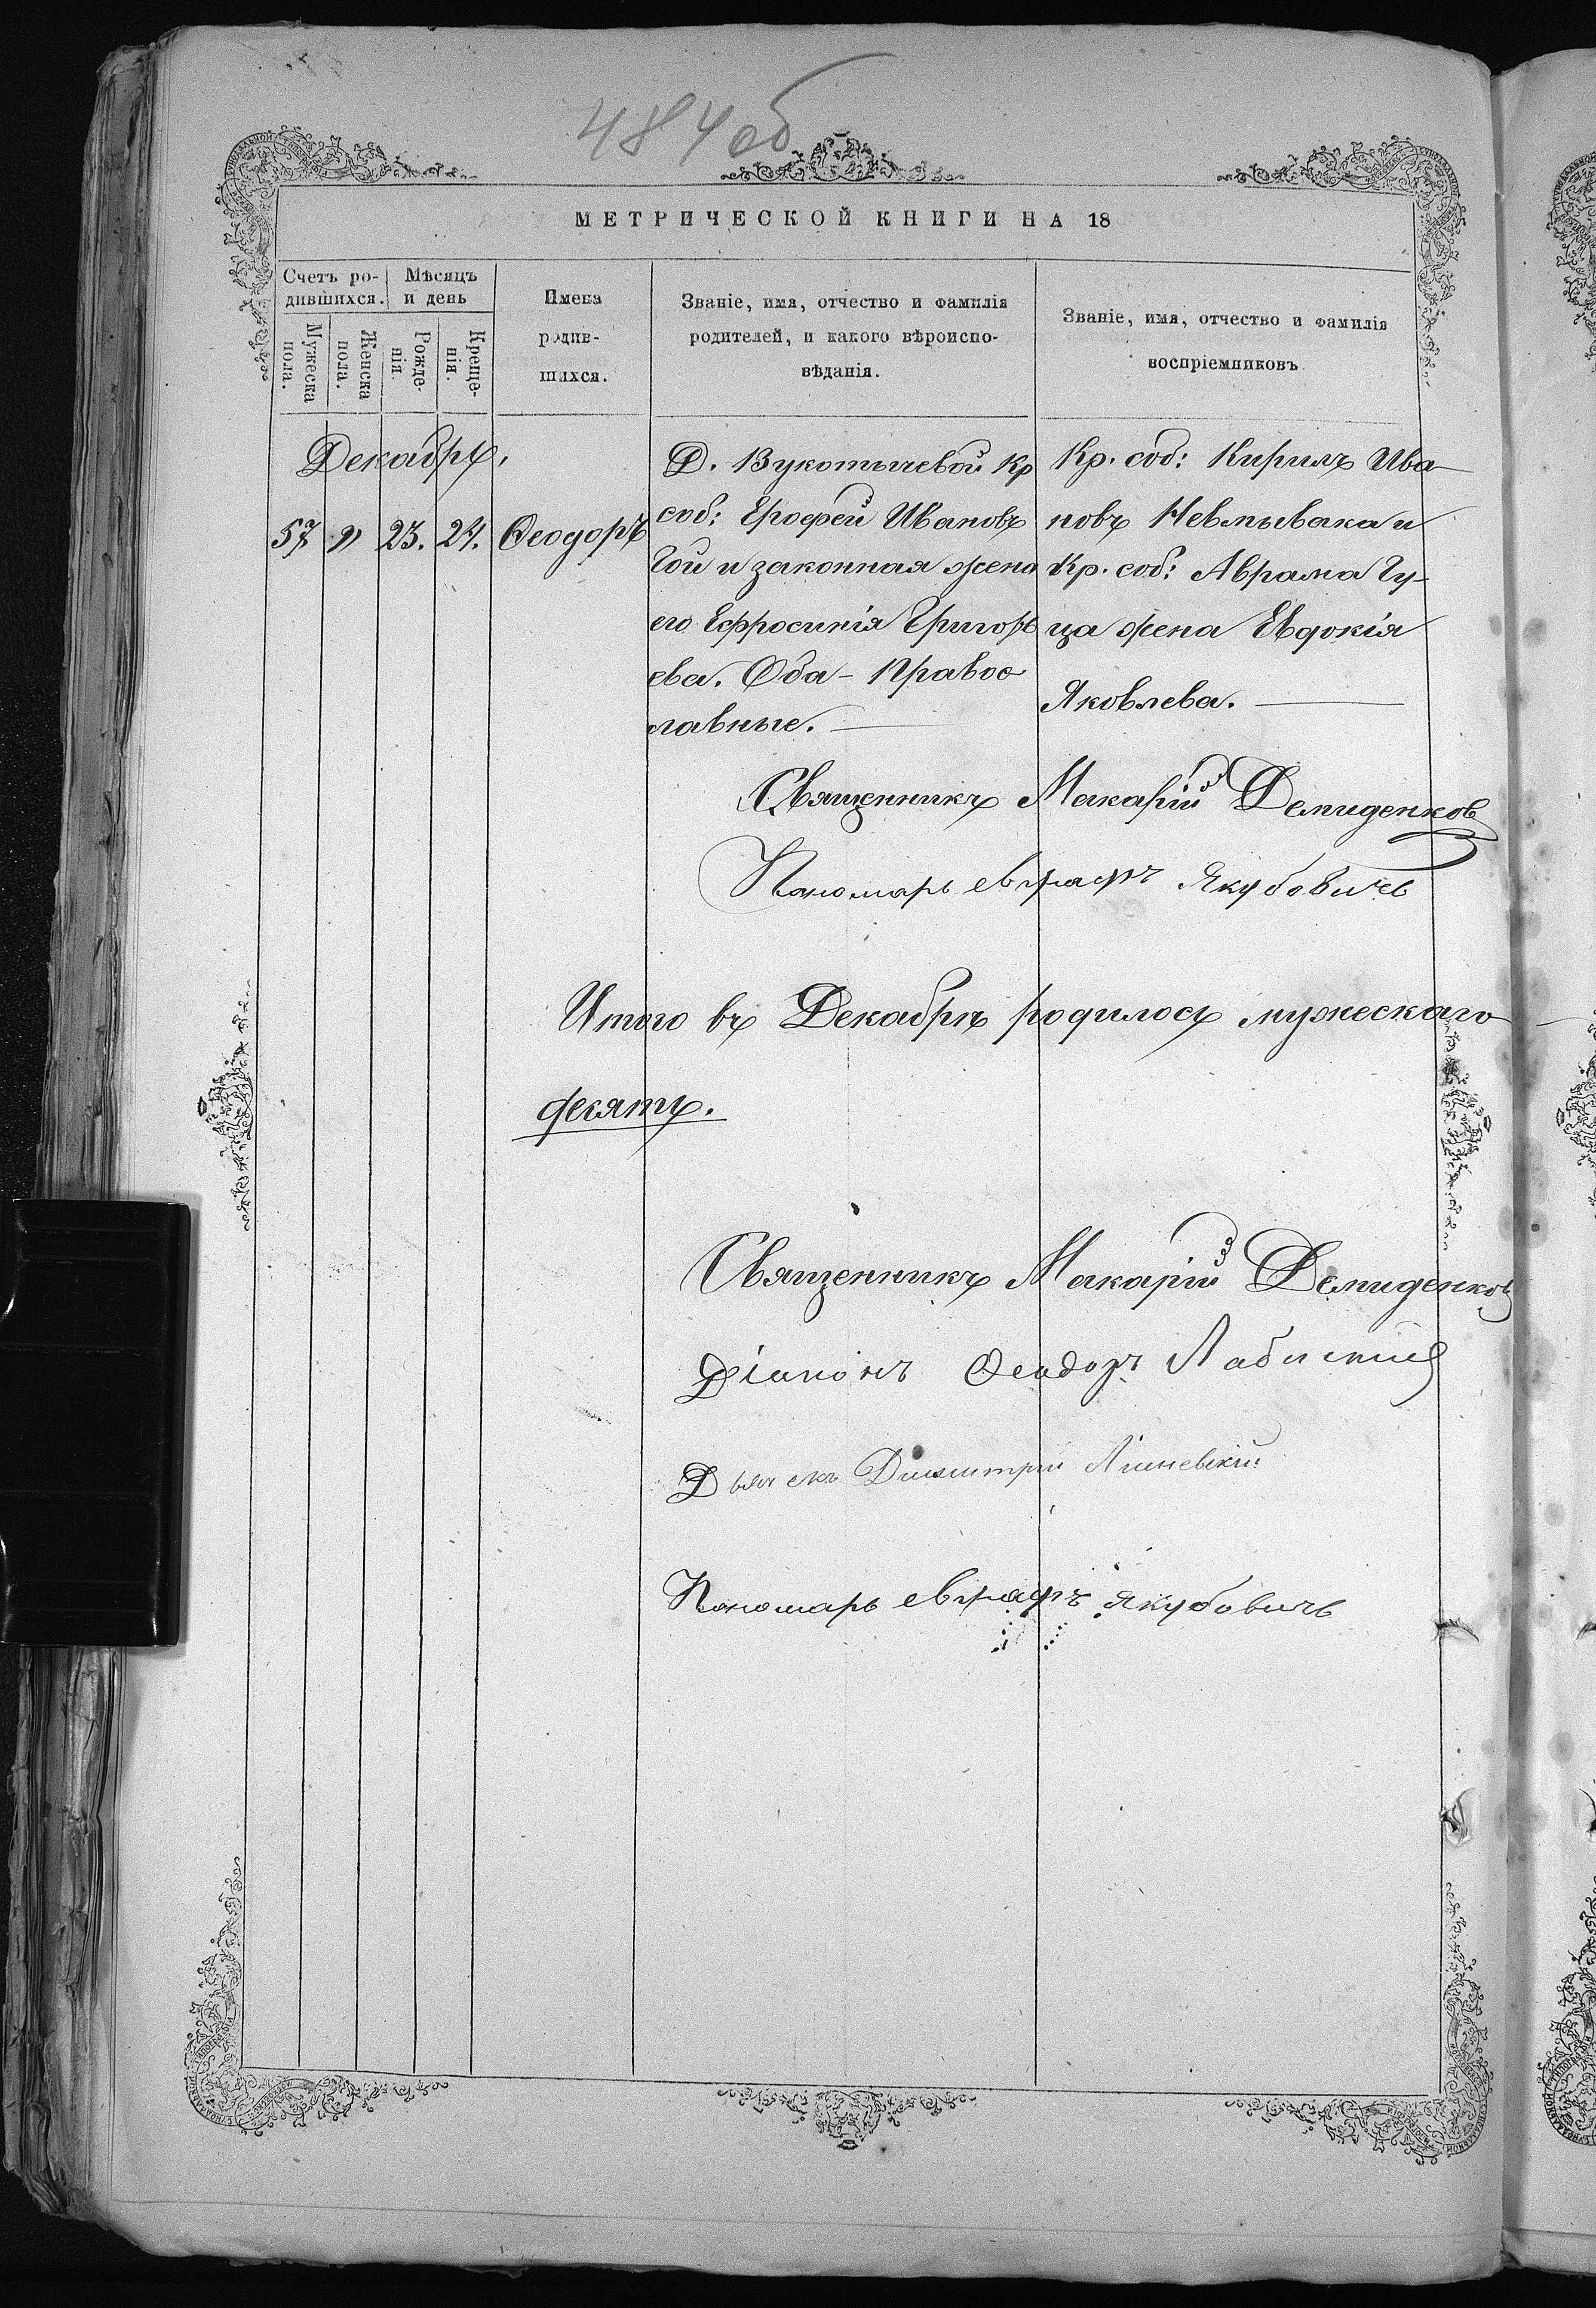 484 об
МЕТРИЧЕСКОЙ КНИГИ НА 18
Счетъ ро-
дившихся.
Мѣсяцъ
и день
Имена
родив-
шихся.
Званіе, имя, отчество и фамилія
родителей, и какого вѣроиспо-
вѣданія.
Званіе, имя, отчество и фамилія
воспріемниковъ
Мужеска
пола.
Женска
пола.
Рожде-
нія.
Креще-
нія.
Декабрь.
57 „ 23. 24. Ѳеодоръ
Д. Вукотичевой Кр
соб: Ерофей Ивановъ
Гой и законная жена
его Ефросинія Григорь
ева. Оба - Правос
лавные.
Кр. соб: Кирилъ Ива
новъ Невмывака и
Кр. соб: Аврама Гу-
ца жена Евдокія
Яковлева.
Священникъ Макарій Демиденков
Пономарь Евграфъ Якубовичъ
Итого въ Декабрѣ родилось мужескаго
десять.
Священникъ Макарій Демиденковъ
Діаконъ Ѳеодоръ
Дьячекъ Димитрій
Пономарь Евграфъ Якубовичъ